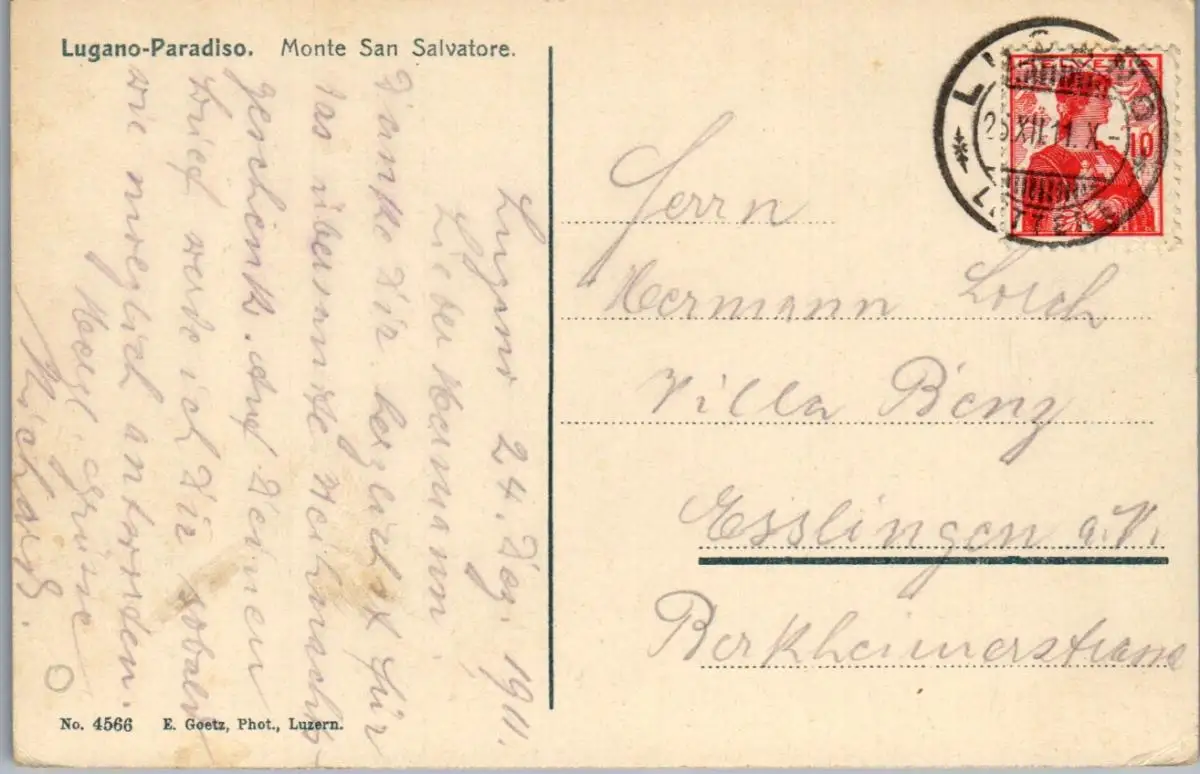 Lugano-Paradiso. Monte San Salvatore.
Lugano 24. Dez. 1911.
Lieber Hermann
Danke Dir herzlichst für
das übersandte Weihnachts-
geschenk. Auf Deinen
Brief werde ich Dir sobald
wie moeglich antworden.
Herzl. Grüsse
Richard.
No. 4566 E. Goetz, Phot., Luzern.
LUGANO
25.XII.11.X
LETTERE
HELVETIA
10
Herrn
Hermann
Villa Benz
Esslingen a.N.
Berkheimerstrasse